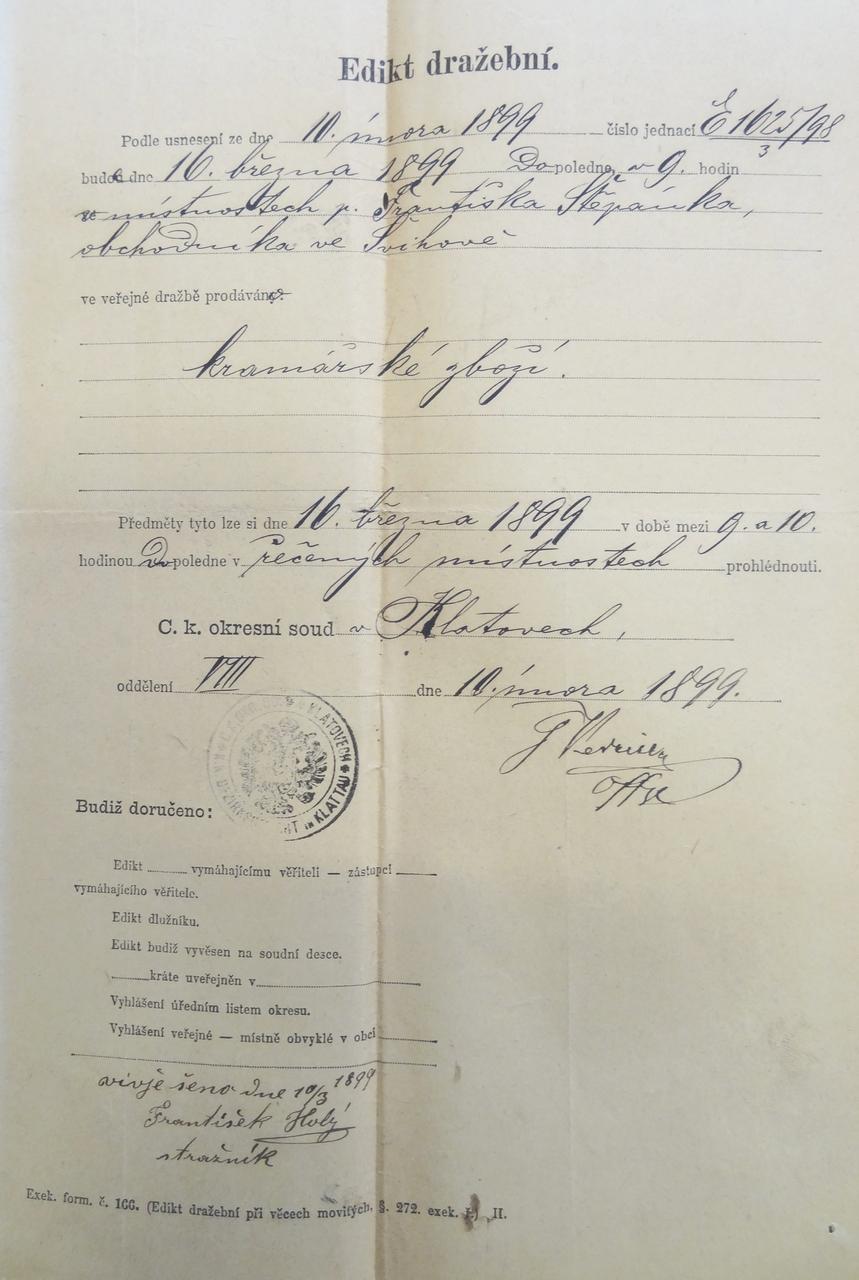 Edikt dražební.
Podle usnesení ze dne 10. února 1899 číslo jednací E 1625/98
3
bude dne 16. března 1899 Dopoledne, v 9. hodin
v místnostech p. Františka Štěpánka,
obchodníka ve Švihově
ve veřejné dražbě prodáváno:
kramářské zboží.
Předměty tyto lze si dne 16. března 1899 v době mezi 9. a 10.
hodinou Dopoledne v řečených místnostech prohlédnouti.
C. k. okresní soud v Klatovech,
oddělení VIII dne 10. února 1899.
KLATOVECH
IN KLATTAU
Budiž doručeno:
Edikt vymáhajícímu věřiteli — zástupci
vymáhajícího věřitele.
Edikt dlužníku.
Edikt budiž vyvěsen na soudní desce.
kráte uveřejněn v
Vyhlášení úředním listem okresu.
Vyhlášení veřejné — místně obvyklé v obci
vivješeno dne 10/3 1899
František Holý
stražník
Exek. form. č. 166. (Edikt dražební při věcech movitých, §. 272. exek. ř.) II.